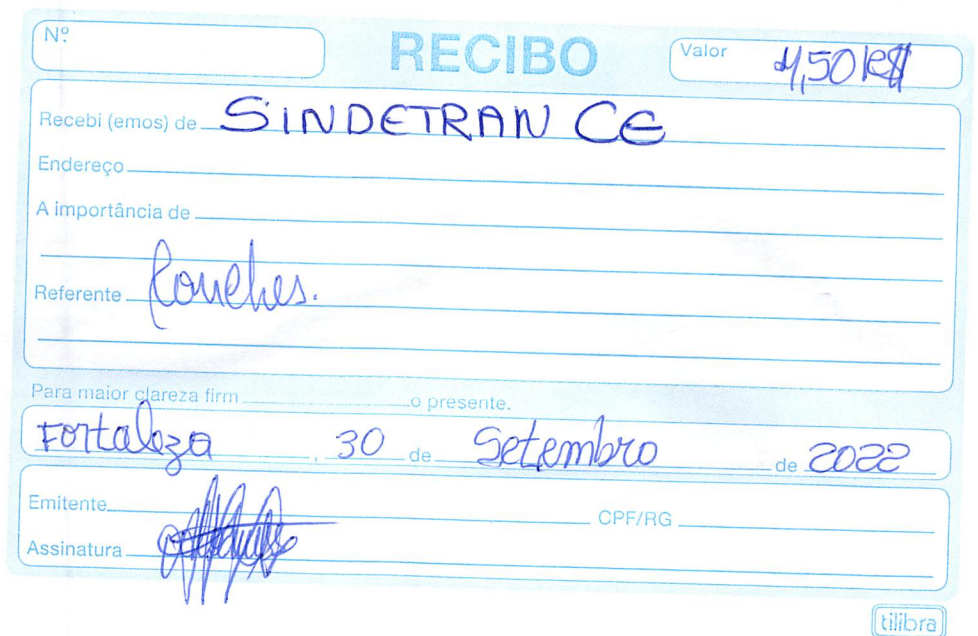 Nº
RECIBO
Valor 4,50 R$
Recebi (emos) de SINDETRAN CE
Endereço
A importância de
Referente Lanches.
Para maior clareza firm o presente.
Fortaleza, 30 de Setembro de 2022
Emitente CPF/RG
Assinatura
tilibra